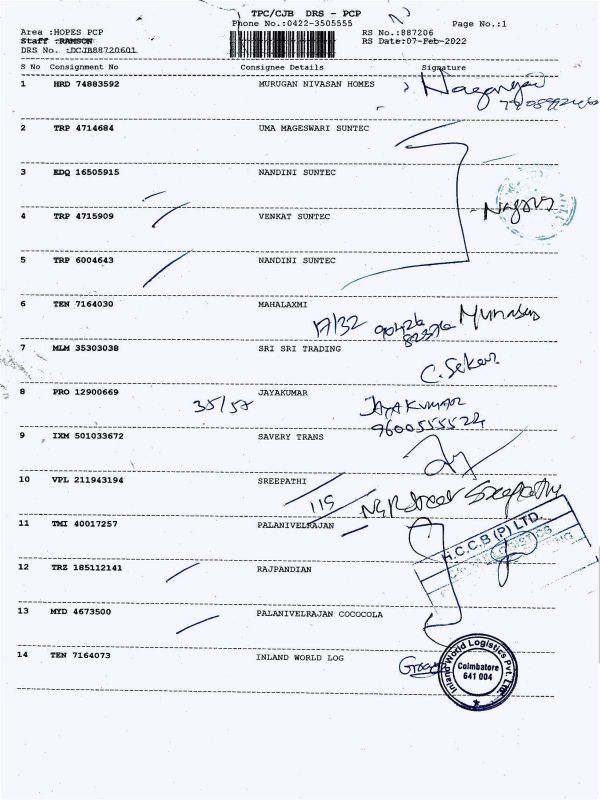 TPC/CJB DRS - PCP
Phone No.:0422-3505555
Page No.:1
Area :HOPES PCP
RS No.:887206
Staff :RAMSON
RS Date:07-Feb-2022
DRS No. :DCJB88720601
S No Consignment No Consignee Details Signature
1 HRD 74883592 MURUGAN NIVASAN HOMES
2 TRP 4714684 UMA MAGESWARI SUNTEC
3 EDQ 16505915 NANDINI SUNTEC
4 TRP 4715909 VENKAT SUNTEC
5 TRP 6004643 NANDINI SUNTEC
6 TEN 7164030 MAHALAXMI
17/32 90426
82376
7 MLM 35303038 SRI SRI TRADING
C. Sekar
8 PRO 12900669 JAYAKUMAR
35/57 JAYAKUMAR
9600555524
9 IXM 501033672 SAVERY TRANS
10 VPL 211943194 SREEPATHI
115 Sreepathy
11 TMI 40017257 PALANIVELRAJAN
H.C.C.B (P) LTD.
12 TRZ 185112141 RAJPANDIAN
13 MYD 4673500 PALANIVELRAJAN COCOCOLA
14 TEN 7164073 INLAND WORLD LOG
Inland World Logistics Pvt. Ltd.
Coimbatore
641 004